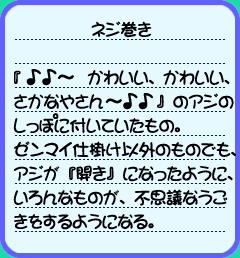 ネジ巻き
『♪♪～ かわいい、かわいい、
さかなやさん～♪♪』のアジの
しっぽに付いていたもの。
ゼンマイ仕掛け以外のものでも、
アジが『開き』になったように、
いろんなものが、不思議なうご
きをするようになる。